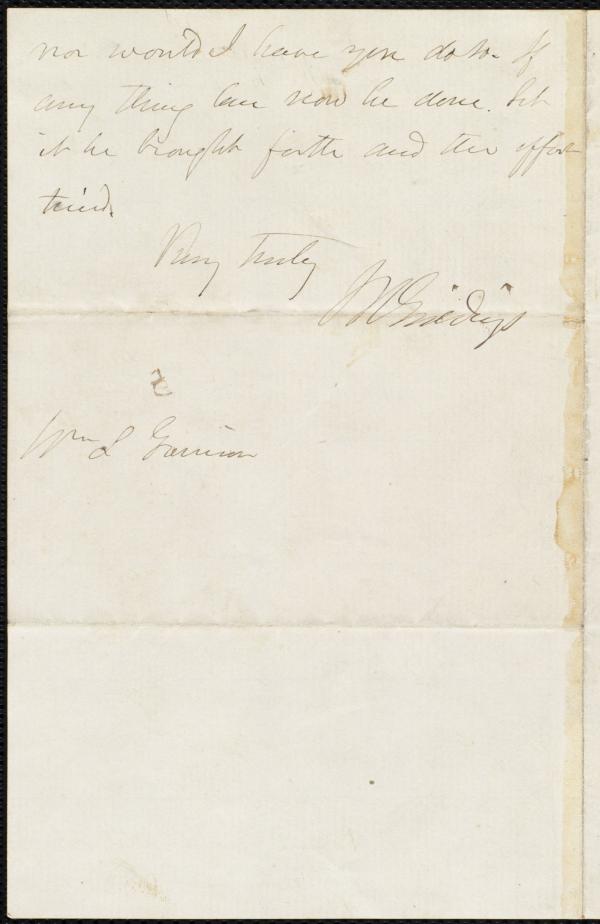 nor would I have you do so. If
any thing can now be done. let
it be brought forth and the effort
tried.
Very truly
J R Giddings
Wm L Garrison